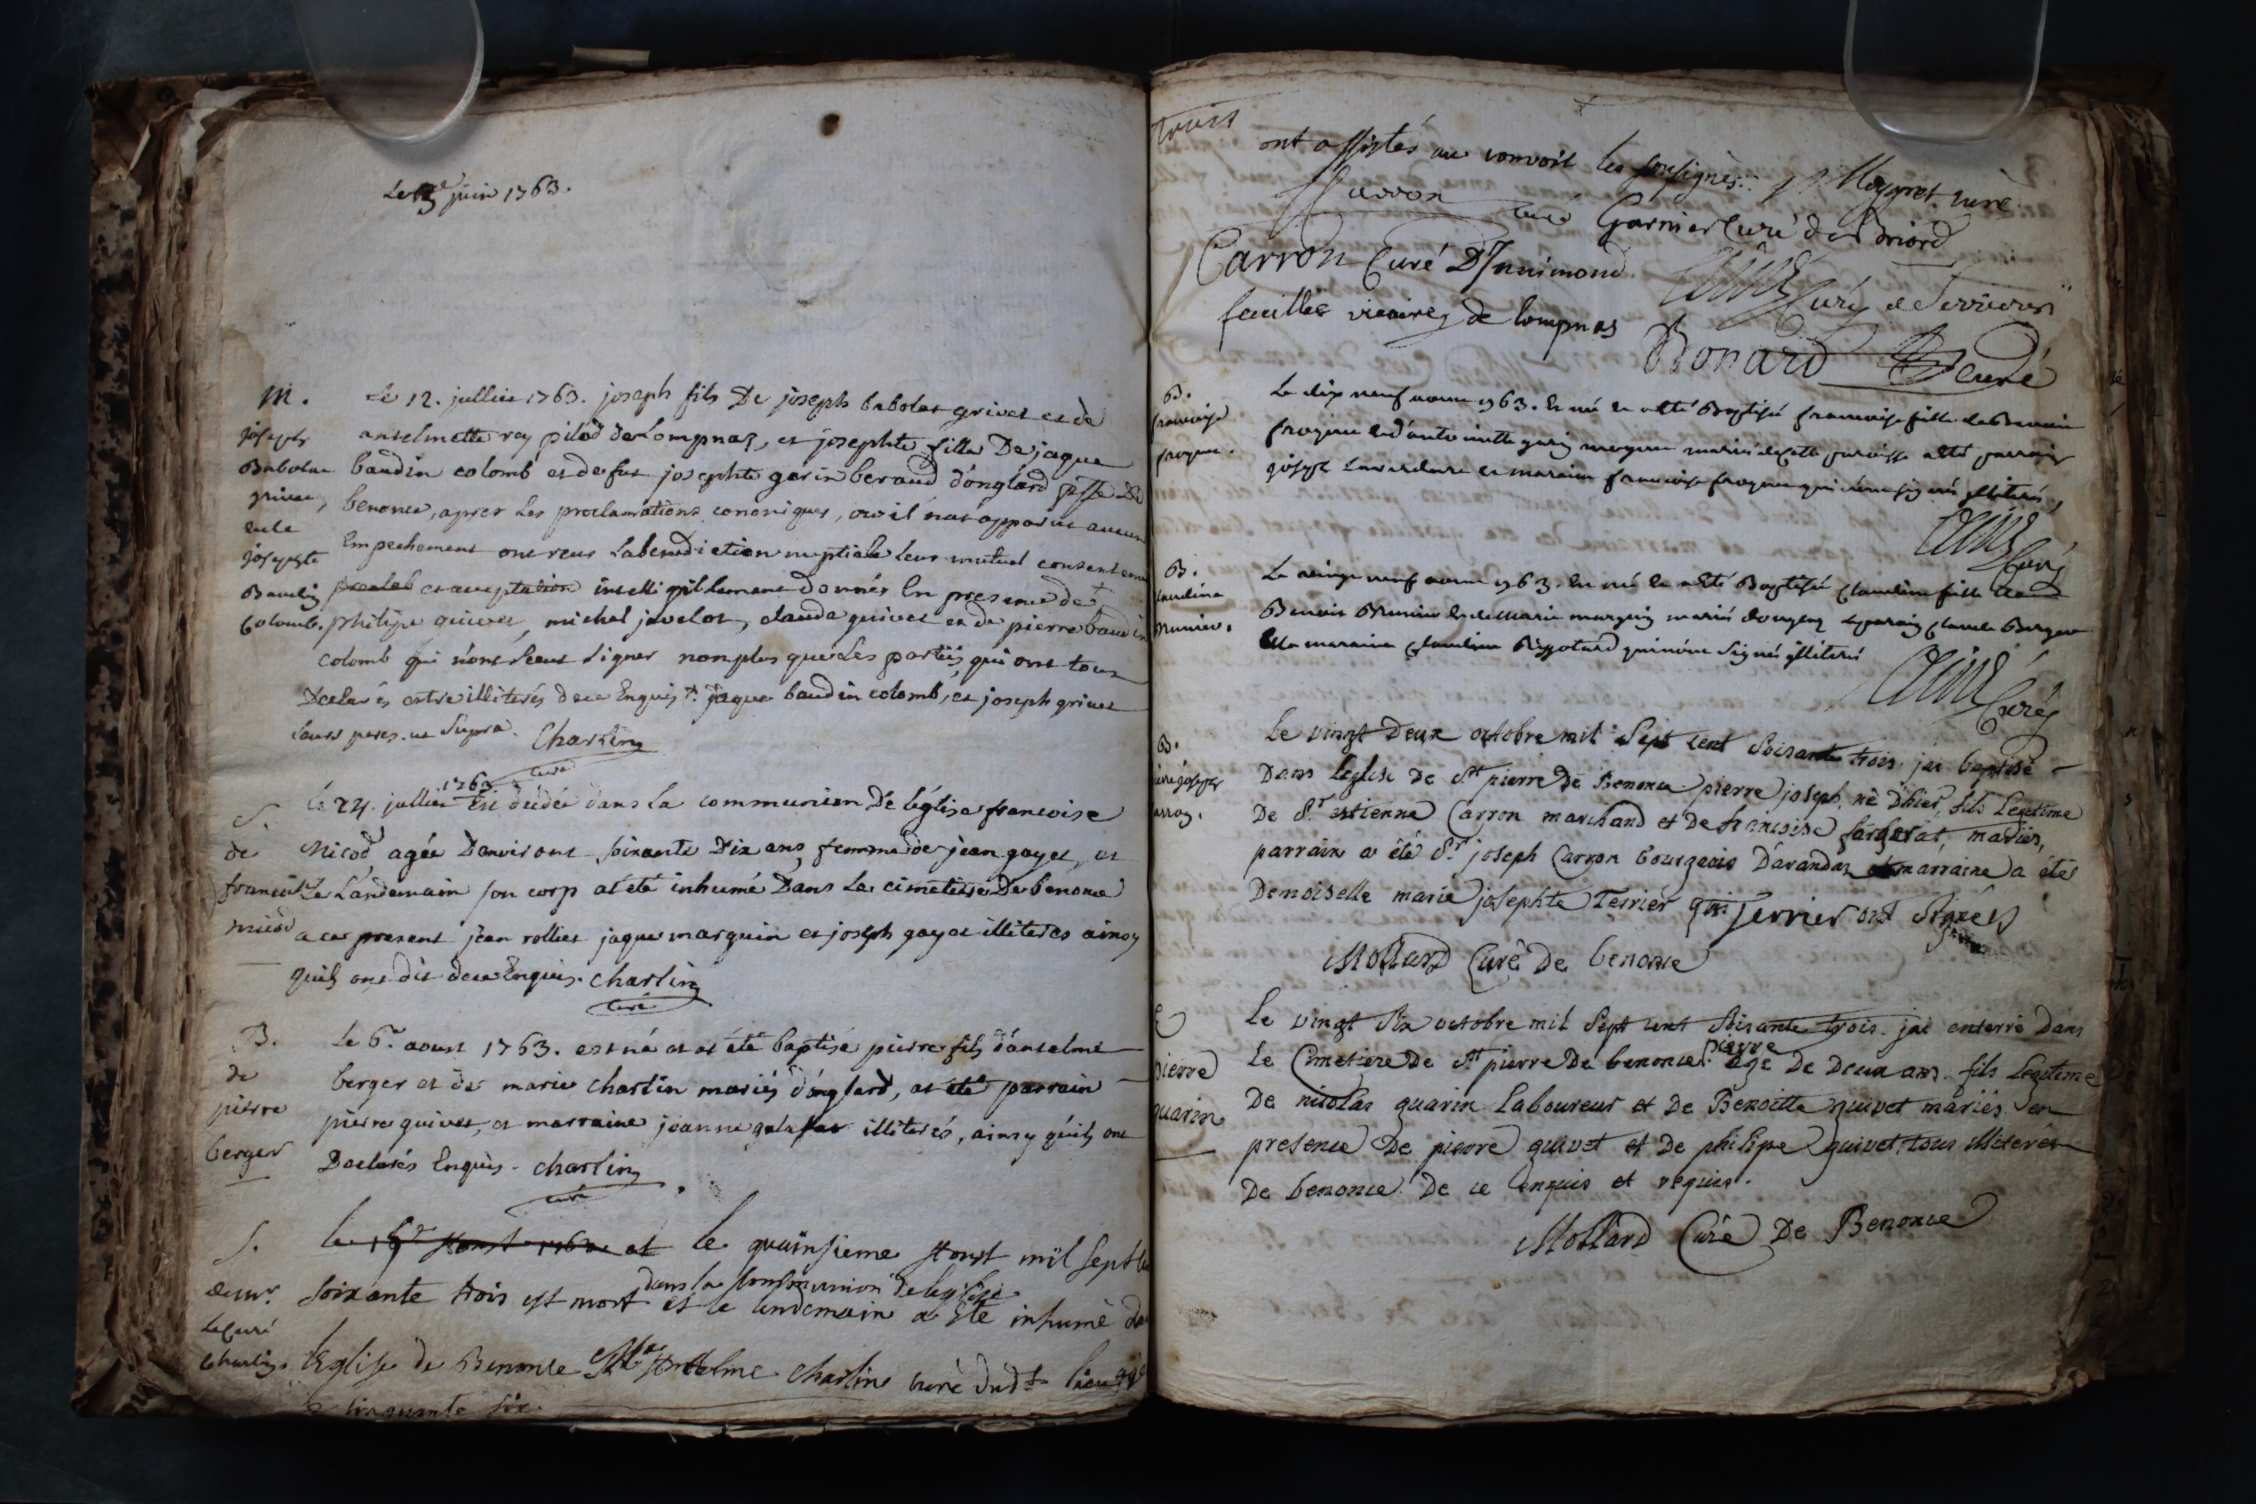 Le 3e juin 1763.
M.
joseph
Babolat
grivet,
et de
josephte
Baudin
Colomb.
Le 12. jullies 1763. joseph fils De joseph babolat grivet et de
antelmette rey pilod de Lompnaz, et josephte fille De jaque
baudin colomb et de fut josephte garin beraud d'onglard psse de
benonce, apres Les proclamations canoniques, ou il n'at apparut aucun
Empechement ont reçus Labenediction nuptiale Leur mutuel consentem
et acceptation intelligiblement donnés En presence de
philipe quivet, michel javelot, claude quivet et de pierre baudin
colomb qui n'ont sceut signer non plus que Les parties, qui ont tous
Declarés estre illiterés de ce Enquis. jaque baudin colomb, et joseph grivet
Leurs peres. ut supra. Charlin
curé
S.
de
francoise
nicod
le 24. jullies 1763 Est décédée dans la communion De l'église francoise
Nicod agée D'environt soixante Dix ans femme de jean gayet, et
Le Landemain son corp at été inhumé Dans Le cimetiere De benonce
a ce present jean rollies jaque marquin et joseph gayet illiterés ainsy
quils ont dit de ce Enquis. charlin
curé
B.
de
pierre
berger
Le 6e aoust 1763. est né et at été baptisé pierre fils d'antelme
berger et de marie charlin mariés d'onglard, at été parrain
pierre quivet, et marraine jeanne illiterés, ainsy qu'ils ont
Declarés Enquis. charlin
curé
S.
de mr.
Le curé
Charlin
le quainsieme Aoust mil sept
soixante trois est mort dans la Communion de leglise et le lendemain a Eté inhumé da
l'Eglise de Benonce Mre Antelme Charlin curé dudt lieu agé
de cinquante six.
trois
ont assistés au convoit les sousignès. Meygret curé
Carron curé Garnier Curé de Briord
Carron Curé D'Innimond. Curé de Serrieres
feuillet vicaire de lompnas Bonard Curé
B.
francoise
Le dix neuf 1763. Est né et a été Baptisé francoise fille de Benoit
et d'antoinette mariés de cette paroisse a été parrain
joseph et maraine francoise qui n'ont signés illiterés
Curé
B.
claudine
Brunier.
Le vingt neuf 1763. Est né et a été Baptisé Claudine fille de
Benoit Brunier et de Marie marquin mariés d'onglas Le parrain Claude Berger
Et la maraine Claudine qui n'ont Signés illiterés
Curé
B.
pierre joseph
carron.
Le vingt Deux octobre mil Sept cent Soixante trois j'ai baptisé
Dans l'eglise De St pierre De Benonce pierre joseph, né D'hier, fils Legitime
De Sr. estienne Carron marchand et de francoise fargerat, mariés,
parrain a été Sr. joseph Carron bourgeois D'arandas et marraine a étés
Demoiselle marie josephte Terrier qui Terrier ont Signés
Mollard Curè De benonce
pierre
guarin
Le vingt Six octobre mil Sept cent Soixante trois. j'ai enterré Dans
Le Cimetiere De St pierre De benonce. pierre agé De Deux ans. fils Legitime
De nicolas guarin Laboureur et De Benoitte quivet mariés en
presence De pierre quivet et De philipe quivet. tous illiterés
De benonce. De ce enquis et requis.
Mollard Curè De Benonce